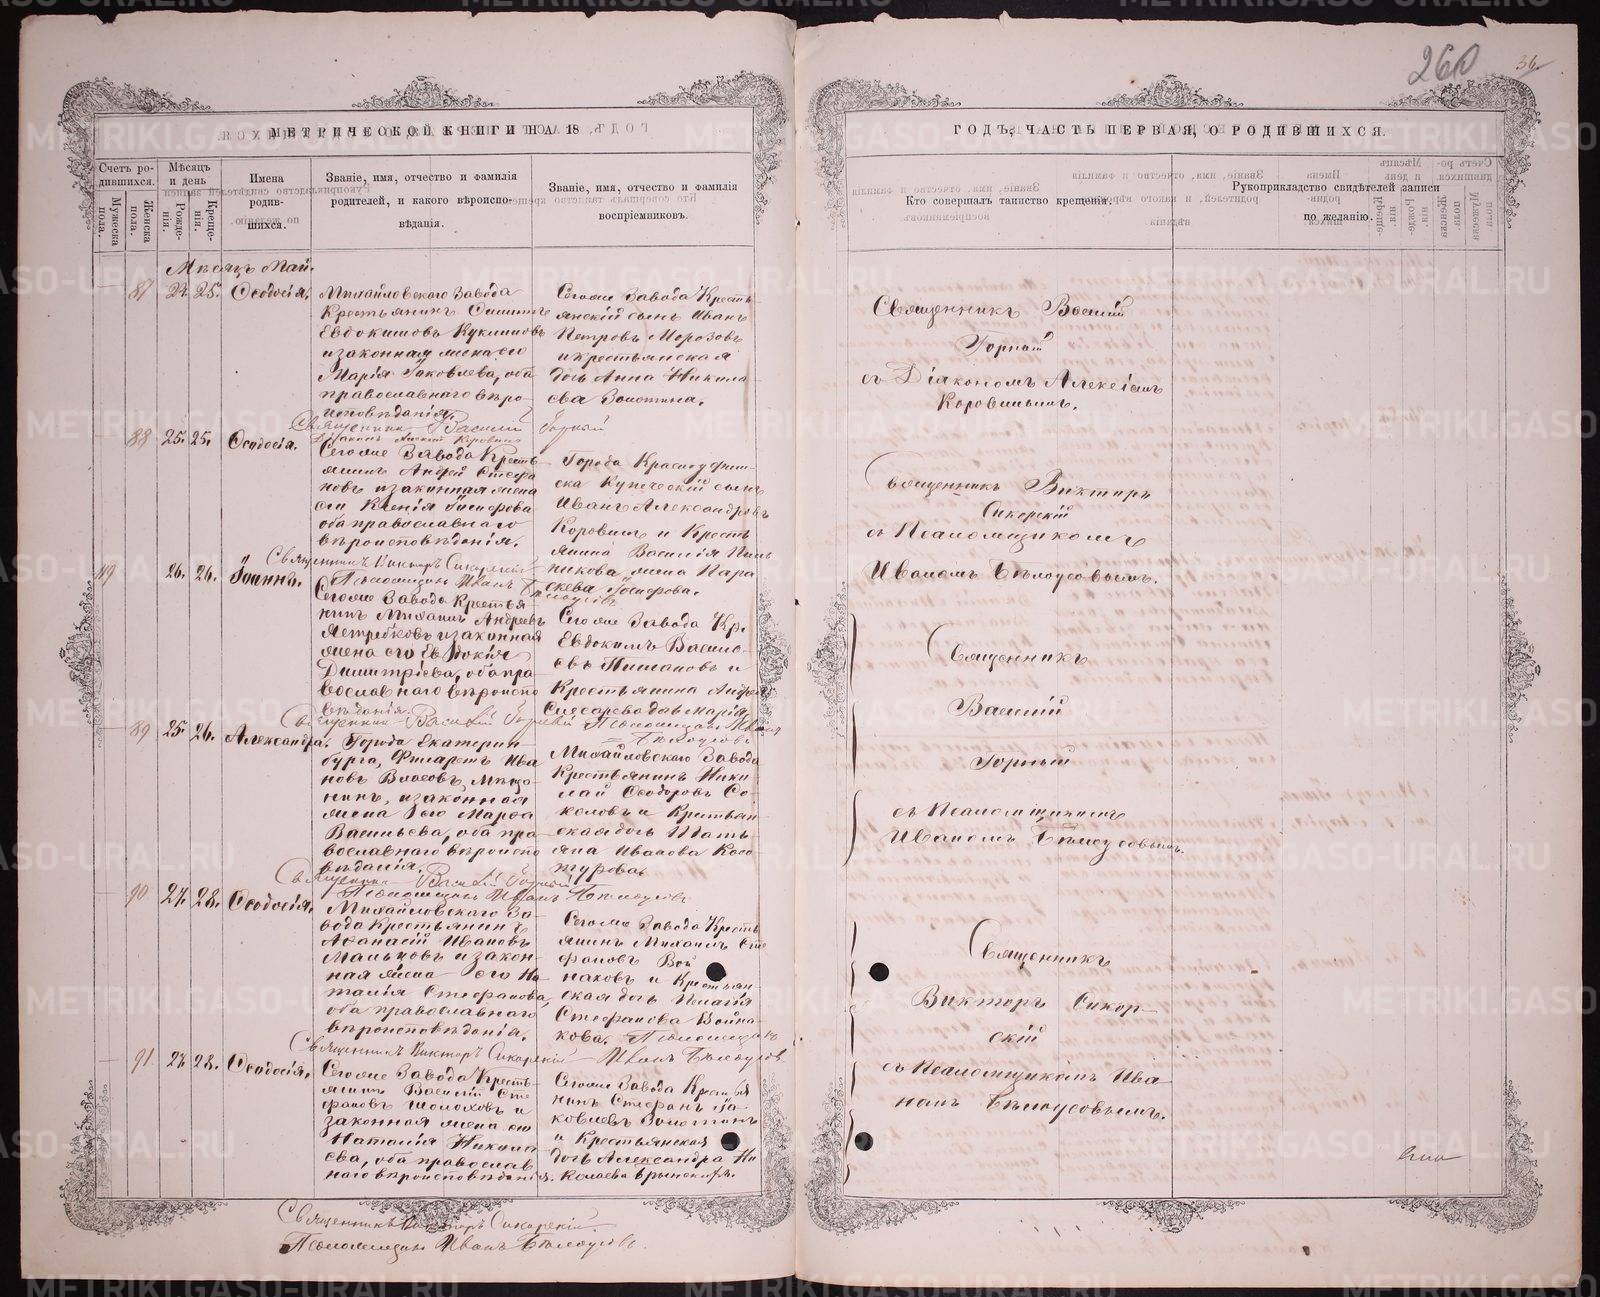 260
36
МЕТРИЧЕСКОЙ КНИГИ НА 18
ГОДЪ, ЧАСТЬ ПЕРВАЯ, О РОДИВШИХСЯ.
Счетъ родившихся.
Мужеска пола.
Женска пола.
Мѣсяцъ и день
Рожденія.
Крещенія.
Имена родившихся.
Званіе, имя, отчество и фамилія
родителей, и какого вѣроисповѣданія.
Званіе, имя, отчество и фамилія
воспріемниковъ.
Кто совершалъ таинство крещенія.
Рукоприкладство свидѣтелей записи
по желанію.
Мѣсяцъ Май.
87 24. 25. Ѳеодосія.
Михайловскаго Завода
Крестьянинъ
Евдокимовъ
и законная жена его
Марія Іаковлева, оба
православнаго вѣро-
исповѣданія.
Сегоже Завода Кресть-
янскій сынъ Иванъ
Петровъ Морозовъ
и крестьянская
дочь Анна Никола-
ева Золотина.
Священникъ Василій
Горный
съ Діакономъ Алексіемъ
Коровинымъ.
Священникъ Василій Горный
Діаконъ Алексій Коровинъ
88 25. 25. Ѳеодосія.
Сегоже Завода Кресть-
янинъ Андрей Стефа-
новъ и законная жена
его Ксенія Іосифова
оба православнаго
вѣроисповѣданія.
Города Красноуфим-
ска Купеческій сынъ
Иванъ Александровъ
Коровинъ и Кресть-
янина Василія
жена Пара-
скева Іосифова.
Священникъ Викторъ
Сикорскій
съ Псаломщикомъ
Иваномъ Бѣлоусовымъ.
Священникъ Викторъ Сикорскій
Псаломщикъ Иванъ Бѣлоусовъ
119 26. 26. Іоаннъ.
Сегоже Завода Крестья-
нинъ Михаилъ Андреевъ
Ястребковъ и законная
жена его Евдокія
Димитріева, оба пра-
вославнаго вѣроиспо-
вѣданія.
Сегоже Завода Кр.
Евдокимъ Василь-
евъ и
Крестьянина Андрея
Слесарева Марія.
Священникъ
Василій
Горный
Священникъ Василій Горный Псаломщикъ Иванъ
Бѣлоусовъ
89 25. 26. Александра.
Города Екатерин-
бурга, Филаретъ Ива-
новъ Власовъ, Мѣща-
нинъ, и законная
жена его Марѳа
Васильева, оба пра-
вославнаго вѣроиспо-
вѣданія.
Михайловскаго Завода
Крестьянинъ Нико-
лай Ѳеодоровъ Со-
коловъ и Крестьян-
ская дочь Тать-
яна Иванова Косо-
турова.
съ Псаломщикомъ
Иваномъ Бѣлоусовымъ.
Священникъ Василій Горный
Псаломщикъ Иванъ Бѣлоусовъ
90 27. 28. Ѳеодосія.
Михайловскаго За-
вода Крестьянинъ
Аѳанасій Ивановъ
Мальковъ и закон-
ная жена его На-
талія Стефанова,
оба православнаго
вѣроисповѣданія.
Сегоже Завода Кресть-
янинъ Михаилъ Сте-
фановъ Вой-
наковъ и Крестьян-
ская дочь Пелагія
Стефанова Война-
кова.
Священникъ
Викторъ Сикор-
скій
съ Псаломщикомъ Ива-
номъ Бѣлоусовымъ.
Псаломщикъ
Священникъ Викторъ Сикорскій Иванъ Бѣлоусовъ
91 27. 28. Ѳеодосія.
Сегоже Завода Кресть-
янинъ Василій Сте-
фановъ Шолоховъ и
законная жена его
Наталія Никола-
ева, оба православ-
наго вѣроисповѣданія.
Сегоже Завода Крестья-
нинъ Стефанъ Іа-
ковлевъ Золотинъ
и Крестьянская
дочь Александра Ни-
колаева
Священникъ Викторъ Сикорскій.
Псаломщикъ Иванъ Бѣлоусовъ.
METRIKI.GASO-URAL.RU